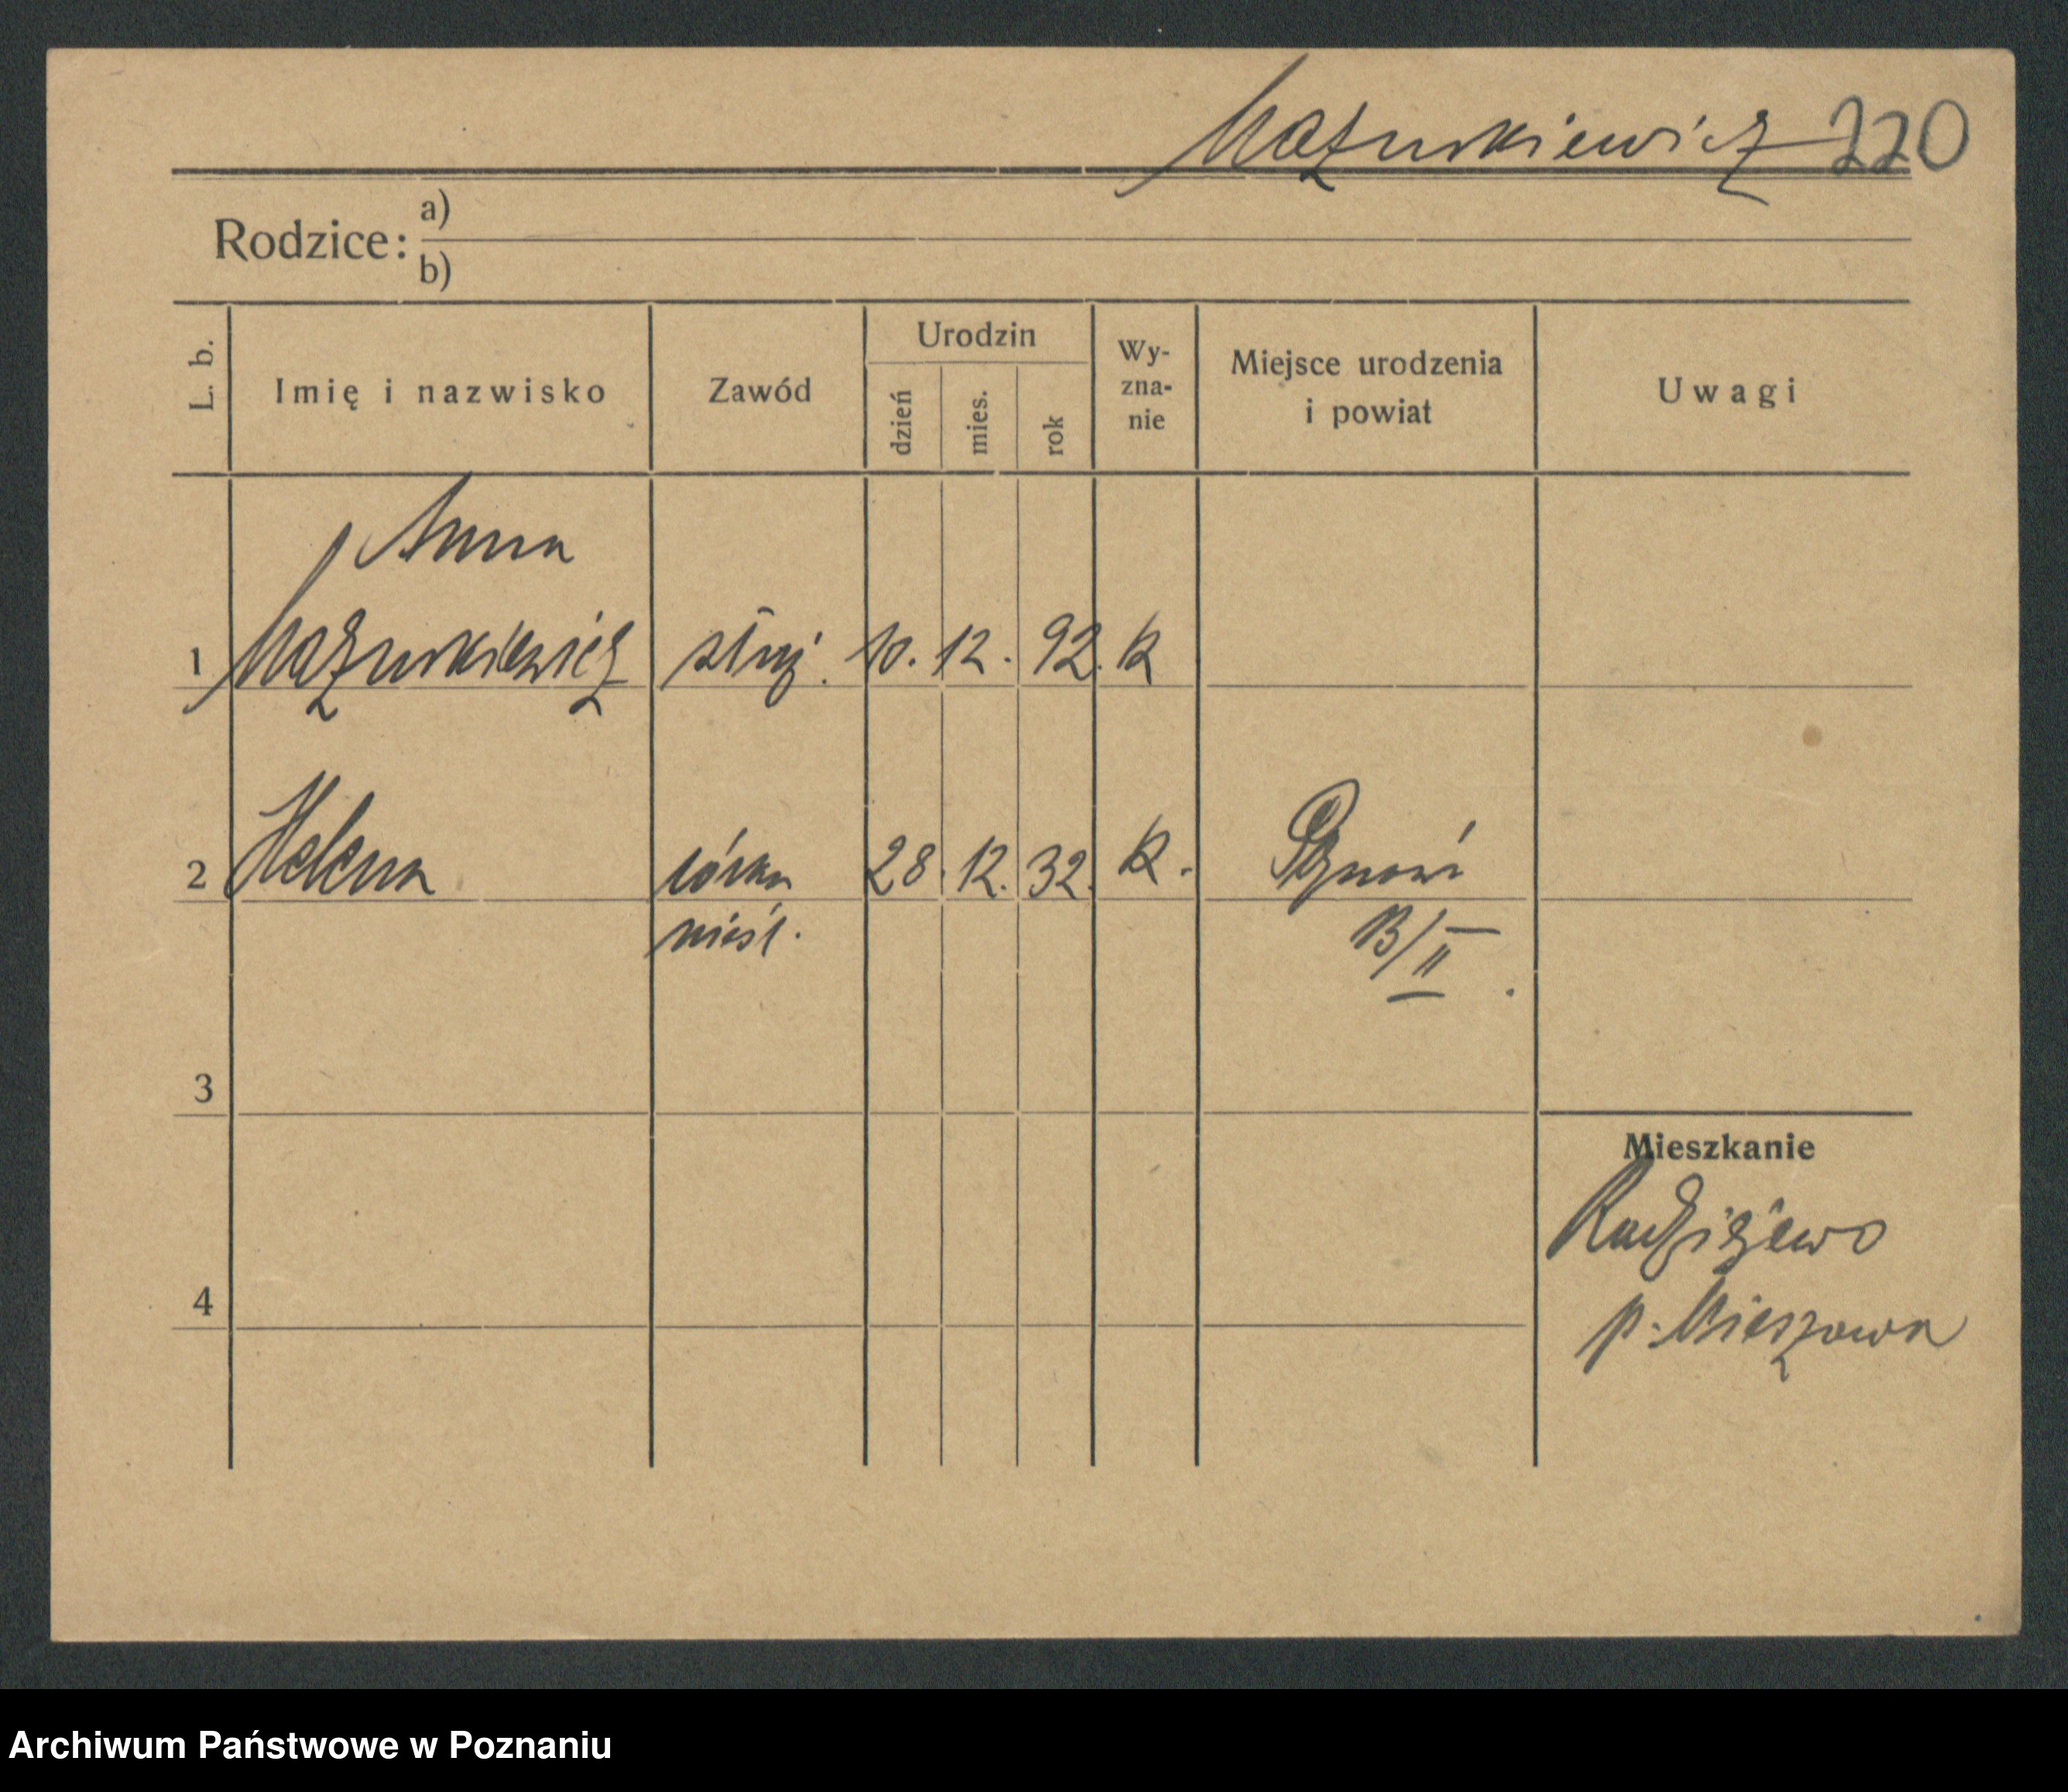 Mazurkiewicz 220
Rodzice: a)
b)
L. b. Imię i nazwisko Zawód Urodzin dzień mies. rok Wy-zna-nie Miejsce urodzenia i powiat Uwagi
Anna
1 Mazurkiewicz służ. 10. 12. 92. k
2 Helena córka 28. 12. 32. k. Poznań
nieśl. B/II
3
Mieszkanie
Radziejewo
4
p. Nieszawa
Archiwum Państwowe w Poznaniu